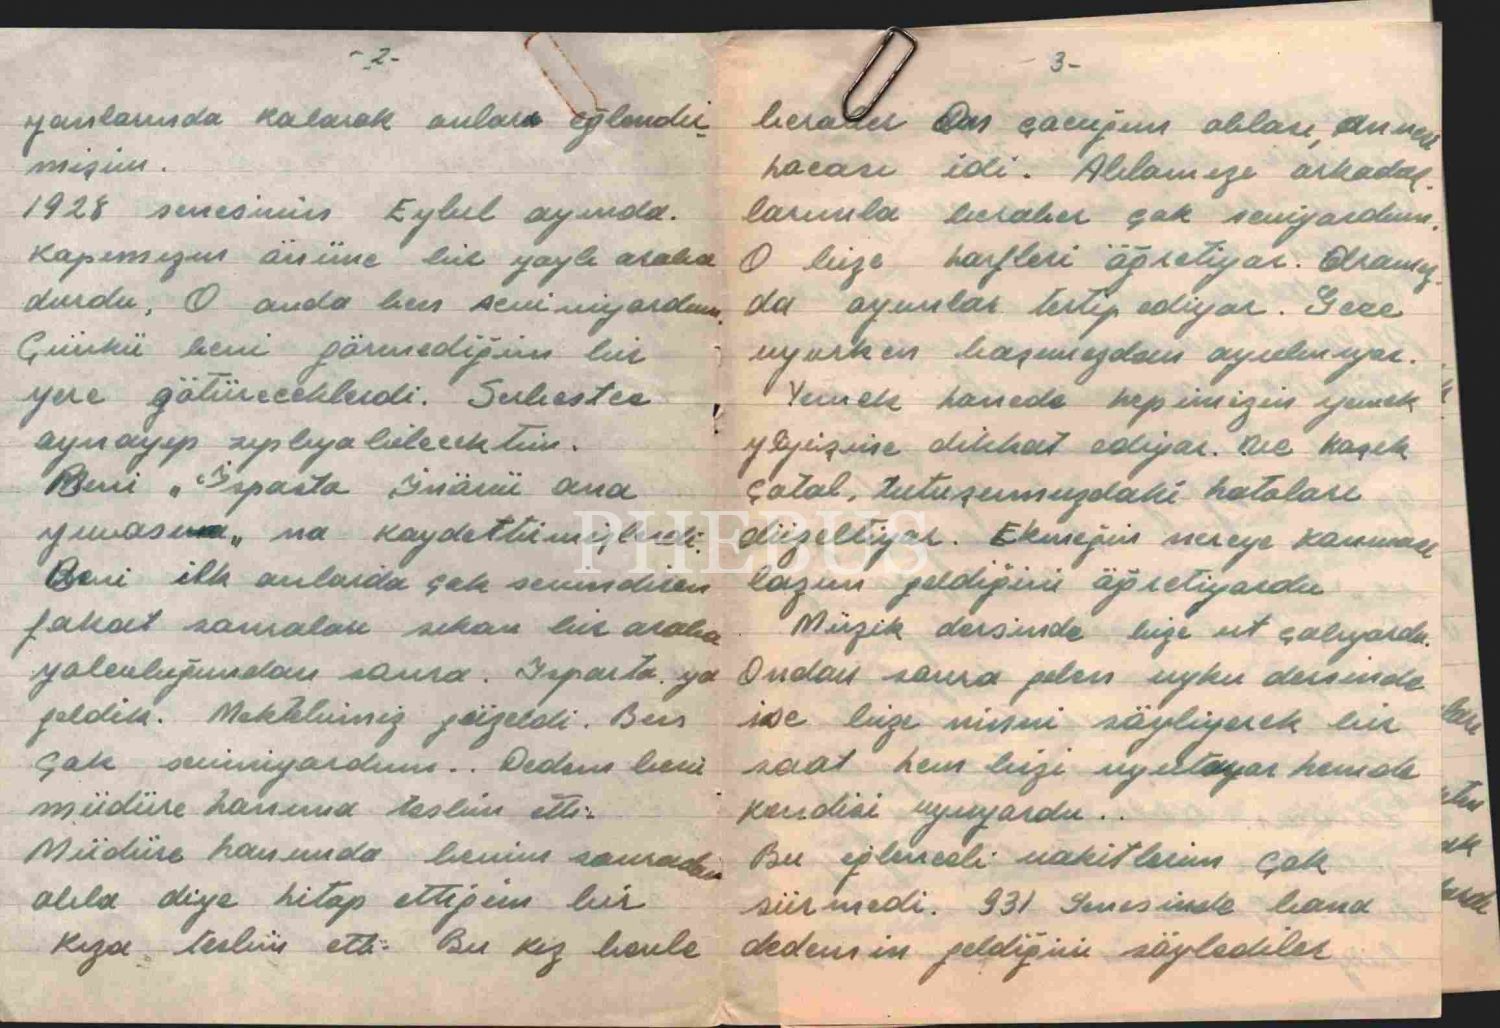 -2-
yanlarında kalarak onları eğlendir
mişim.
1928 senesinin Eylul ayında.
kapımızın önüne bir yaylı araba
durdu, O anda ben seviniyordum.
Çünkü beni görmediğim bir
yere götüreceklerdi. Serbestce
oynayıp zıplıyabilecektim.
Beni "Isparta İnönü ana
yuvasına" na kaydettirmişlerdi.
Beni ilk anlarda çok sevindiren
fakat sonraları sıkan bir araba
yolculuğundan sonra. Isparta. ya
geldik. Mektebimiz güzeldi. Ben
çok seviniyordum.. Dedem beni
müdüre hanıma teslim etti.
Müdüre hanımda benim sonradan
abla diye hitap ettiğim bir
kıza teslim etti. Bu kız benle
-3-
beraber On çocuğun ablası, annesi
hocası idi. Ablamızı arkadaş.
larımla beraber çok seviyordum.
O bize harfleri öğretiyor. Aramız
da oyunlar tertip ediyor. Gece
uyurken başımızdan ayrılmıyor.
Yemek hanede hepimizin yemek
yiyişine dikkat ediyor. ve kaşık
çatal, tutuşumuzdaki hataları
düzeltiyor. Ekmeğin nereye konması
lazım geldiğini öğretiyordu
Müzik dersinde bize ut çalıyordu.
Ondan sonra gelen uyku dersinde
ise bize ninni söyliyerek bir
saat hem bizi uyutuyor hemde
kendisi uyuyordu..
Bu eğlenceli vakitlerim çok
sürmedi. 931 Senesinde bana
dedemin geldiğini söylediler
PHEBUS